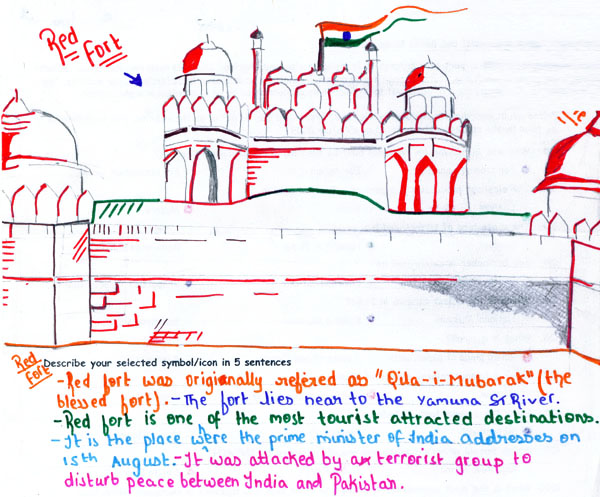 Red
Fort
Red
Fort
Describe your selected symbol/icon in 5 sentences
-Red fort was origianally refered as "Qila-i-Mubarak" (the
blessed fort). -The fort lies near to the Yamuna River.
-Red fort is one of the most tourist attracted destinations.
-It is the place were the prime minister of India addresses on
15th August. -It was attacked by a terrorist group to
disturb peace between India and Pakistan.